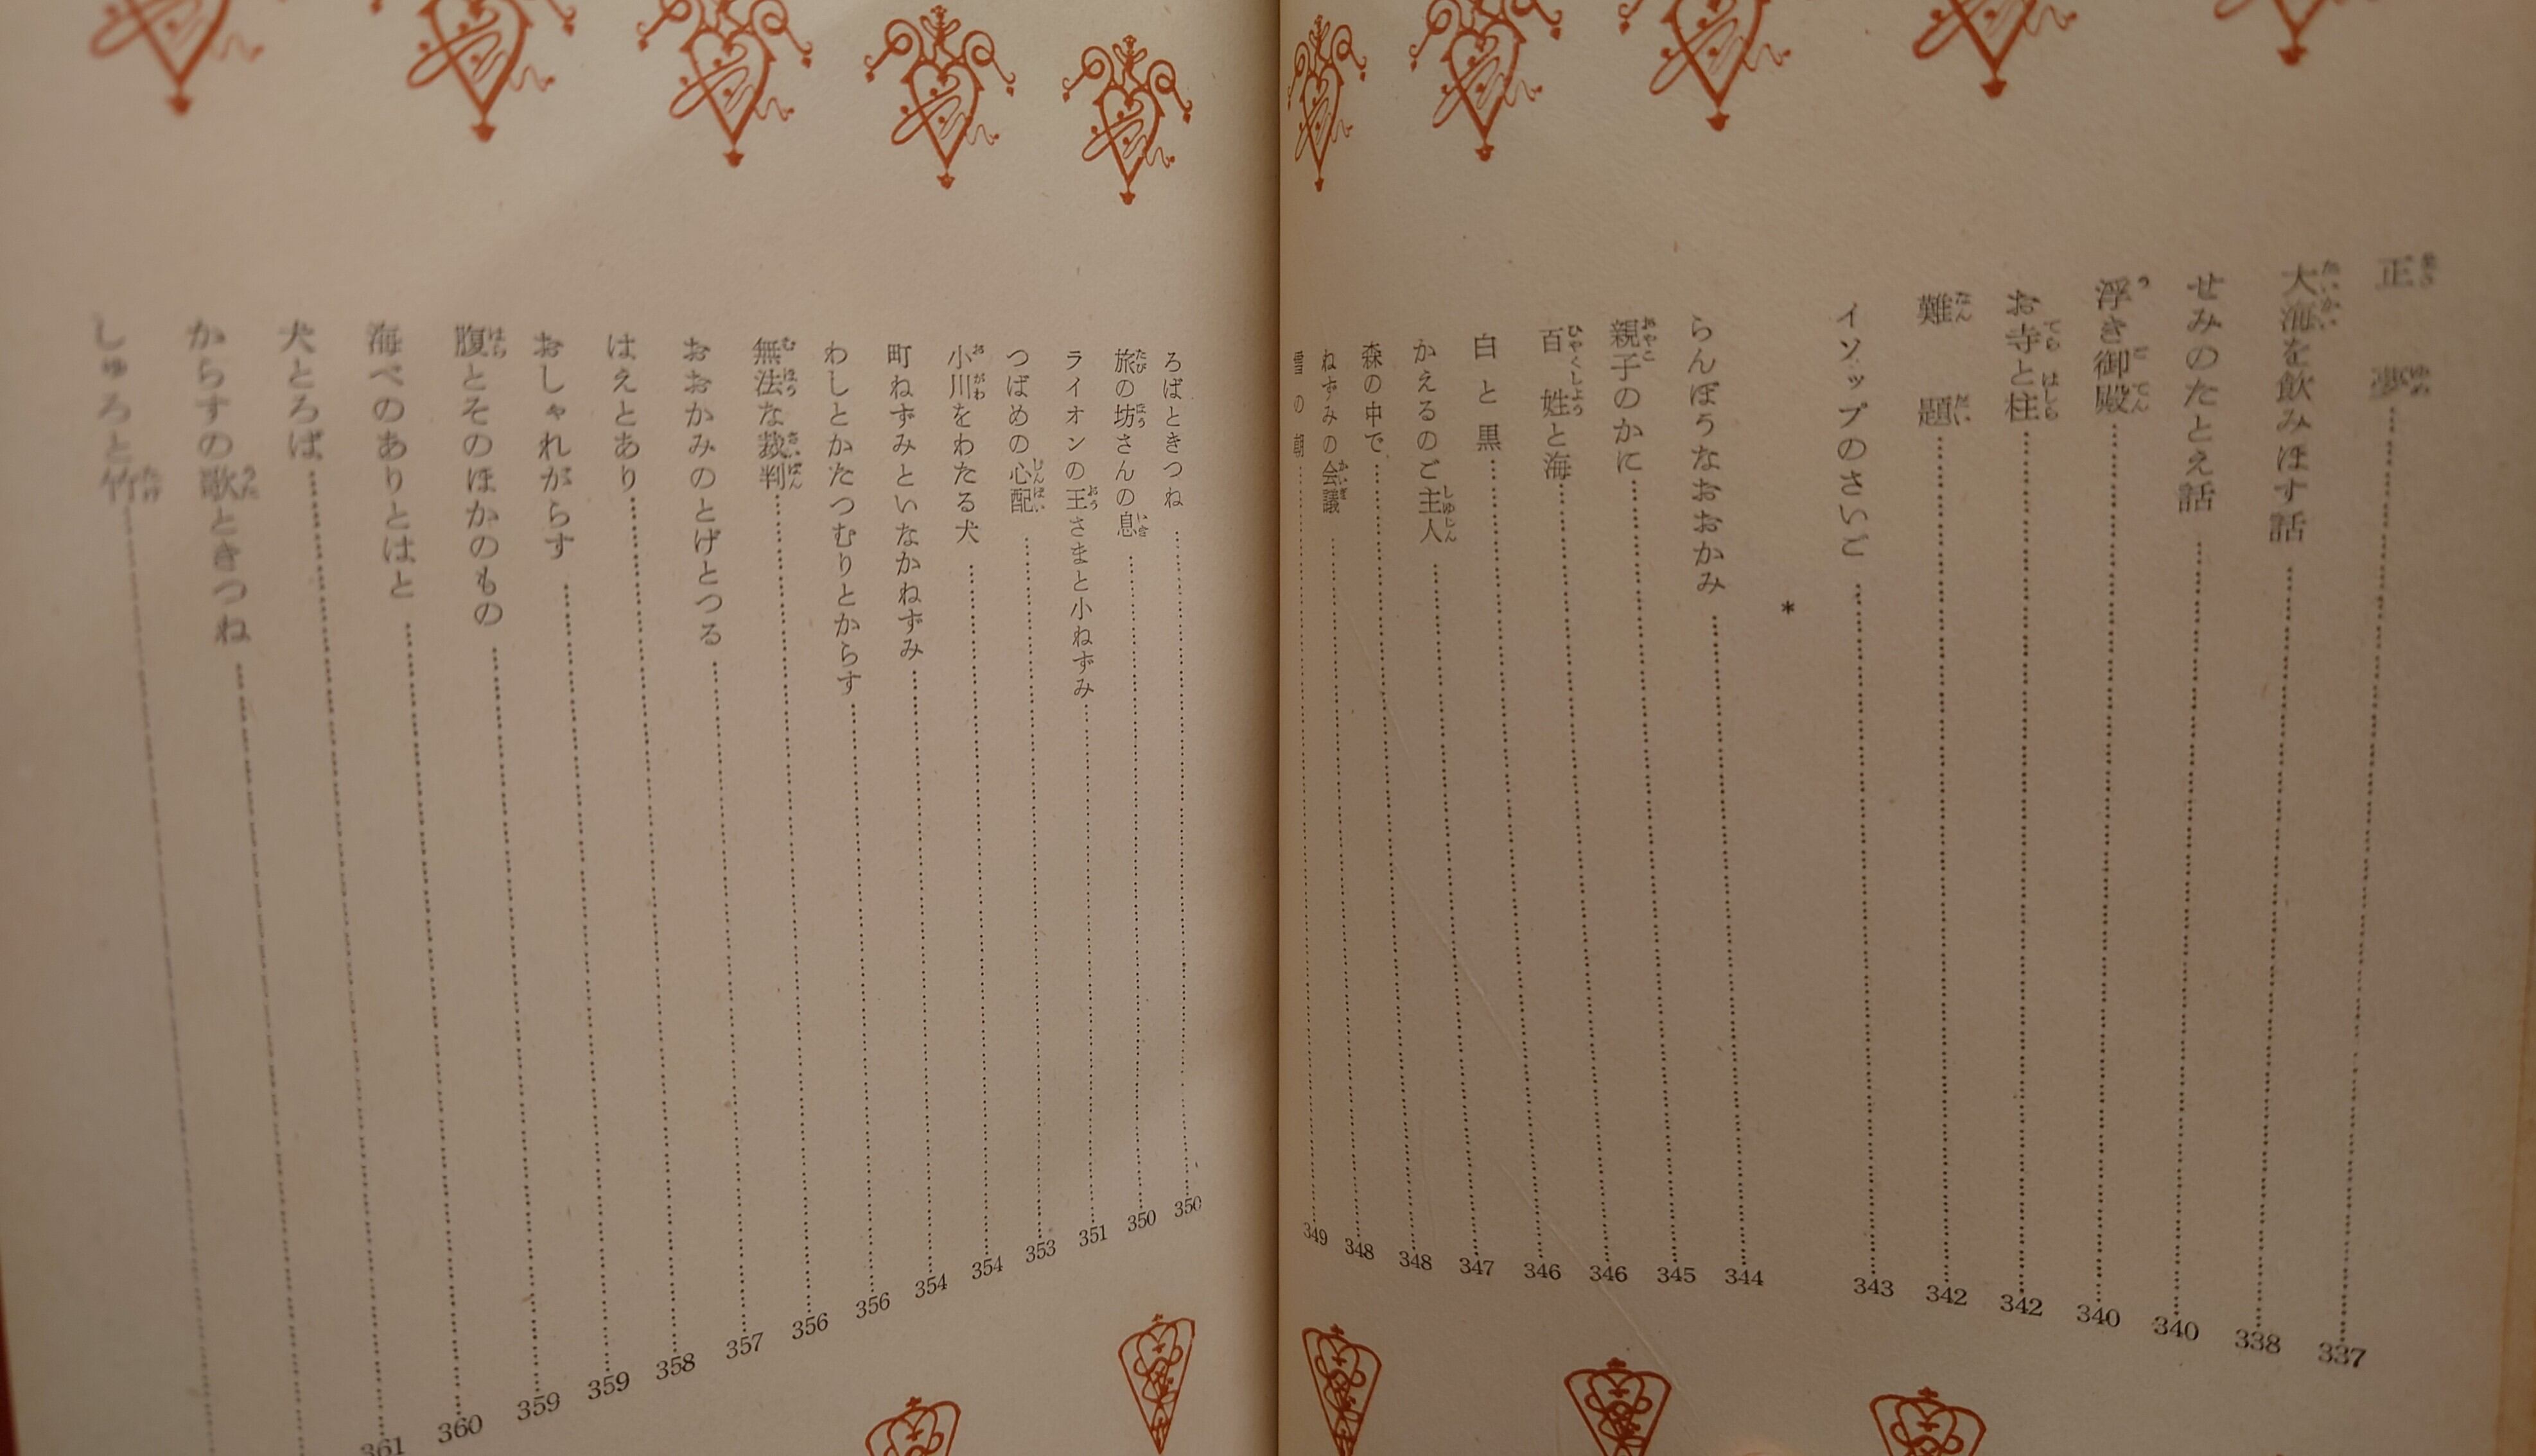 正夢……337
大海を飲みほす話……338
せみのたとえ話……340
浮き御殿……340
お寺と柱……342
難題……342
イソップのさいご……343
*
らんぼうなおおかみ……344
親子のかに……345
百姓と海……346
白と黒……346
かえるのご主人……347
森の中で……348
ねずみの会議……348
雪の朝……349
ろばときつね……350
旅の坊さんの息……350
ライオンの王さまと小ねずみ……351
つばめの心配……353
小川をわたる犬……354
町ねずみといなかねずみ……354
わしとかたつむりとからす……356
無法な裁判……356
おおかみのとげとつる……357
はえとあり……358
おしゃれがらす……359
腹とそのほかのもの……359
海べのありとはと……360
犬とろば……361
からすの歌ときつね……
しゅろと竹……